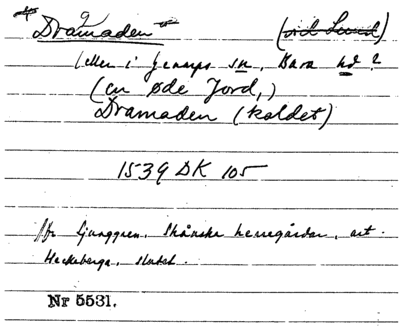 "Dramaden" (vid Lund)
(eller i Genarps sn, Bara hd?
(en øde Jord,)
Dramaden (kaldet)
1539 DK 105
Jfr Ljunggren, Skånska herregårdar, art.
Heckeberga, slutet.
Nr 5531.